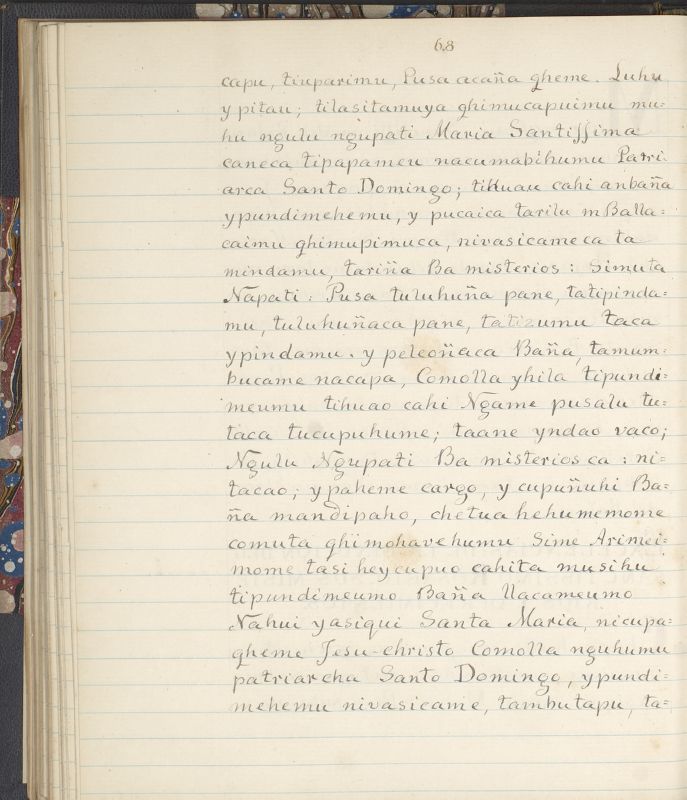 68
capu, tiuparimu, Pusa acaña qheme. Luhu
y pitau; tilasitamuya qhimucapuimu mu=
hu ngulu ngupati Maria Santissima
caneca tipapameu nacumabihumu Patri-
arca Santo Domingo; tihuau cahi anbaña
ypundimehemu, y pucaica tarilu mBalla=
caimu qhimupimuca, nivasicameca ta
mindamu, tariña Ba misterios: Simuta
Ñapati: Pusa tuluhuña pane, tatipinda=
mu, tuluhuñaca pane, tatizumu taca
ypindamu. y peleoñaca Baña, tamum=
bucame nacapa, Comolla yhila tipundi=
meumu tihuao cahi Ngame pusalu tu=
taca tucupuhume; taane yndao vaco;
Ngulu Ngupati Ba misterios ca: ni=
tacao; ypaheme cargo, y cupuñuhi Ba=
ña mandipaho, chetua hehumemome
comuta qhimohavehumu Sime Arimei=
mome tasi hey cupuo cahita musihu
tipundimeumo Baña llacameumo
Nahui yasiqui Santa Maria, nicupa=
qheme Jesu-christo Comolla nguhumu
patriarcha Santo Domingo, ypundi=
mehemu nivasicame, tambutapu, ta=